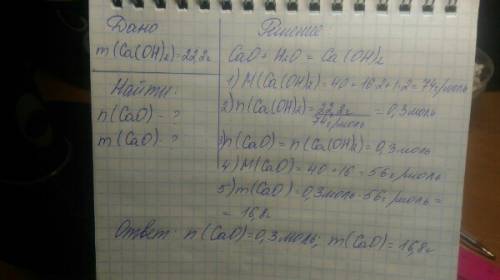 Дано
m(Ca(OH)₂)=22,2г
Найти:
n(CaO)-?
m(CaO)-?
Решение
CaO+H₂O=Ca(OH)₂
1) M(Ca(OH)₂)=40+16·2+1·2=74г/моль
2) n(Ca(OH)₂)=22,2г/74г/моль=0,3моль
3) n(CaO)=n(Ca(OH)₂)=0,3моль
4) M(CaO)=40+16=56г/моль
5) m(CaO)=0,3моль·56г/моль=
=16,8г
Ответ: n(CaO)=0,3моль; m(CaO)=16,8г